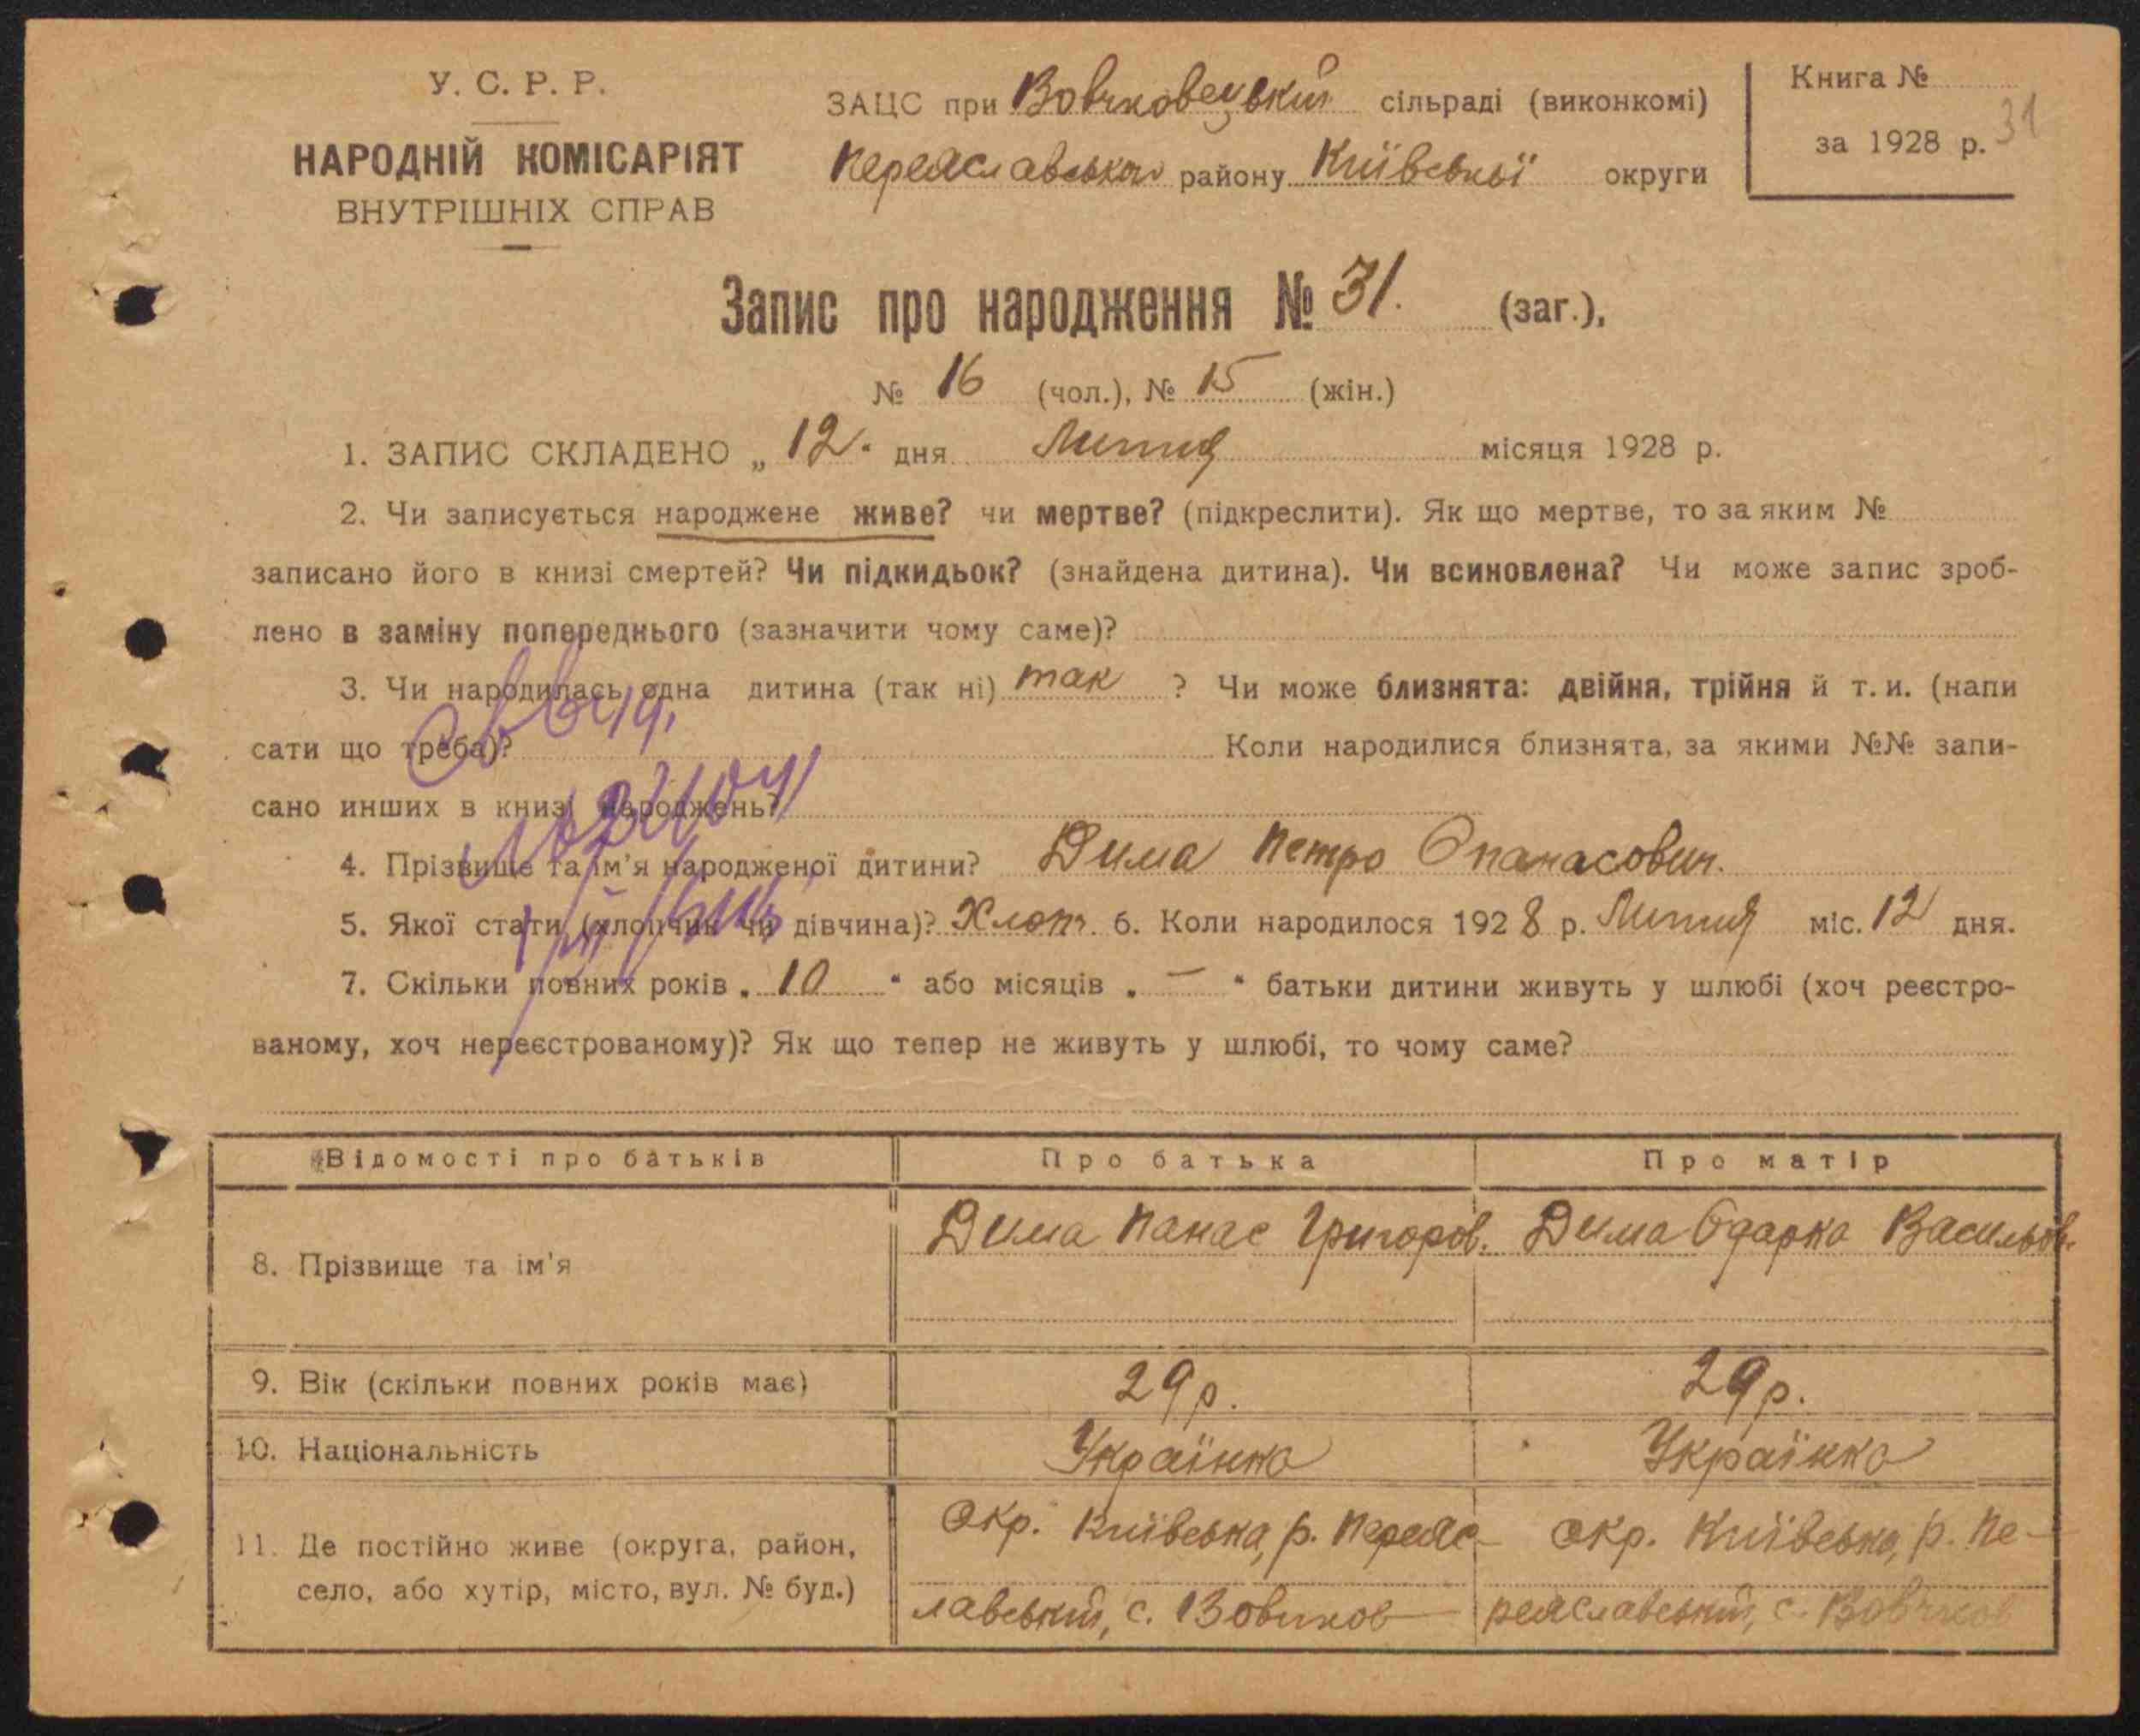 У. С. Р. Р.
НАРОДНІЙ КОМІСАРІЯТ
ВНУТРІШНІХ СПРАВ
ЗАЦС при Вовчковецькій сільраді (виконкомі)
Переяславського району Київської округи
Книга №
за 1928 р. 31
Запис про народження № 31. (заг.),
№ 16 (чол.), № 15 (жін.)
1. ЗАПИС СКЛАДЕНО „ 12 " дня Липня місяця 1928 р.
2. Чи записується народжене живе? чи мертве? (підкреслити). Як що мертве, то за яким №
записано його в книзі смертей? Чи підкидьок? (знайдена дитина). Чи всиновлена? Чи може запис зроб-
лено в заміну попереднього (зазначити чому саме)?
3. Чи народилась одна дитина (так ні) так ? Чи може близнята: двійня, трійня й т. и. (напи
сати що треба)? Коли народилися близнята, за якими №№ запи-
сано инших в книзі народжень?
4. Прізвище та ім'я народженої дитини? Дима Петро Опанасович.
5. Якої стати (хлопчик чи дівчина)? Хлопч. 6. Коли народилося 1928 р. Липня міс. 12 дня.
7. Скільки повних років „ 10 " або місяців „ — " батьки дитини живуть у шлюбі (хоч реєстро-
ваному, хоч нереєстрованому)? Як що тепер не живуть у шлюбі, то чому саме?
Відомості про батьків Про батька Про матір
8. Прізвище та ім'я Дима Панас Григоров. Дима Одарка Васильов.
9. Вік (скільки повних років має) 29 р. 29 р.
10. Національність Українка Українка
11. Де постійно живе (округа, район, село, або хутір, місто, вул. № буд.)
Окр. Київська, р. Переяс-
лавський, с. Вовчков
Окр. Київська, р. Пе-
реяславський, с. Вовчков